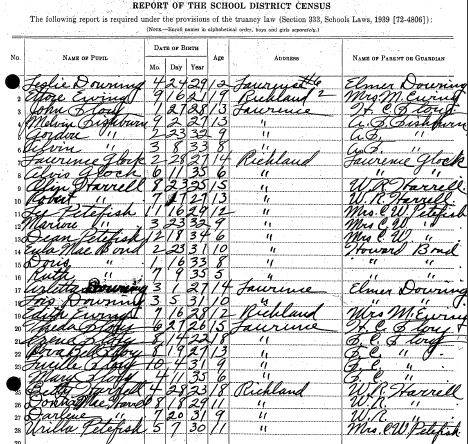 REPORT OF THE SCHOOL DISTRICT CENSUS
The following report is required under the provisions of the truancy law (Section 333, Schools Laws, 1939 [72-4806]):
(NOTE.—Enroll names in alphabetical order, boys and girls separately.)
No. NAME OF PUPIL DATE OF BIRTH AGE ADDRESS NAME OF PARENT OR GUARDIAN
Mo. Day Year
Leslie Downing 4 24 29 12 Laurence #6 Elmer Downing
2 Ewing 9 16 27 14 Richland 2 Mrs M. Ewing
3 John Flory 1 27 28 13 Laurence H. C. Flory
4 Melvin Fishburn 9 2 27 13 " A. F. Fishburn
5 Gordon " 2 23 32 9 " A. F.
6 Alvin " 3 8 33 8 " A. F. "
7 Laurence Glock 2 28 27 14 Richland Laurence Glock
8 Alvis Glock 6 11 35 6 " " "
9 Harrell 8 23 25 15 " W. R. Harrell
10 Robert " 7 27 13 " W. R. Harrell
11 Petefish 11 16 29 12 " Mrs. C. W. Petefish
12 Marion " 3 23 32 9 " Mrs C. W. "
13 Dean Petefish 12 18 34 6 " Mrs C. W. "
14 Eula Mae Bond 2 23 31 10 " Howard Bond
15 Doris " 1 16 33 8 " " "
16 Ruth " 7 9 35 5 " " "
17 Arletta Downing 3 1 27 14 Laurence Elmer Downing
18 Lois Downing 3 5 31 10 " " "
19 Edith Ewing 7 16 28 12 Richland Mrs M. Ewing
20 Theda Flory 6 27 26 15 Laurence H. C. Flory
21 Irene Flory 8 14 22 18 " F. C. Flory
22 Flory 8 19 27 13 " F. C. "
23 Lucille Flory 10 4 31 9 " F. C. "
24 Mary Flory 4 11 35 6 " F. C. "
25 Betty Harrell 4 28 23 18 Richland W. R. Harrell
26 Donna Mae Harrell 8 18 29 11 " W. R. "
27 Darlene " 7 20 31 9 " W. R. "
28 Urilla Petefish 5 7 30 11 " Mrs. C. W. Petefish